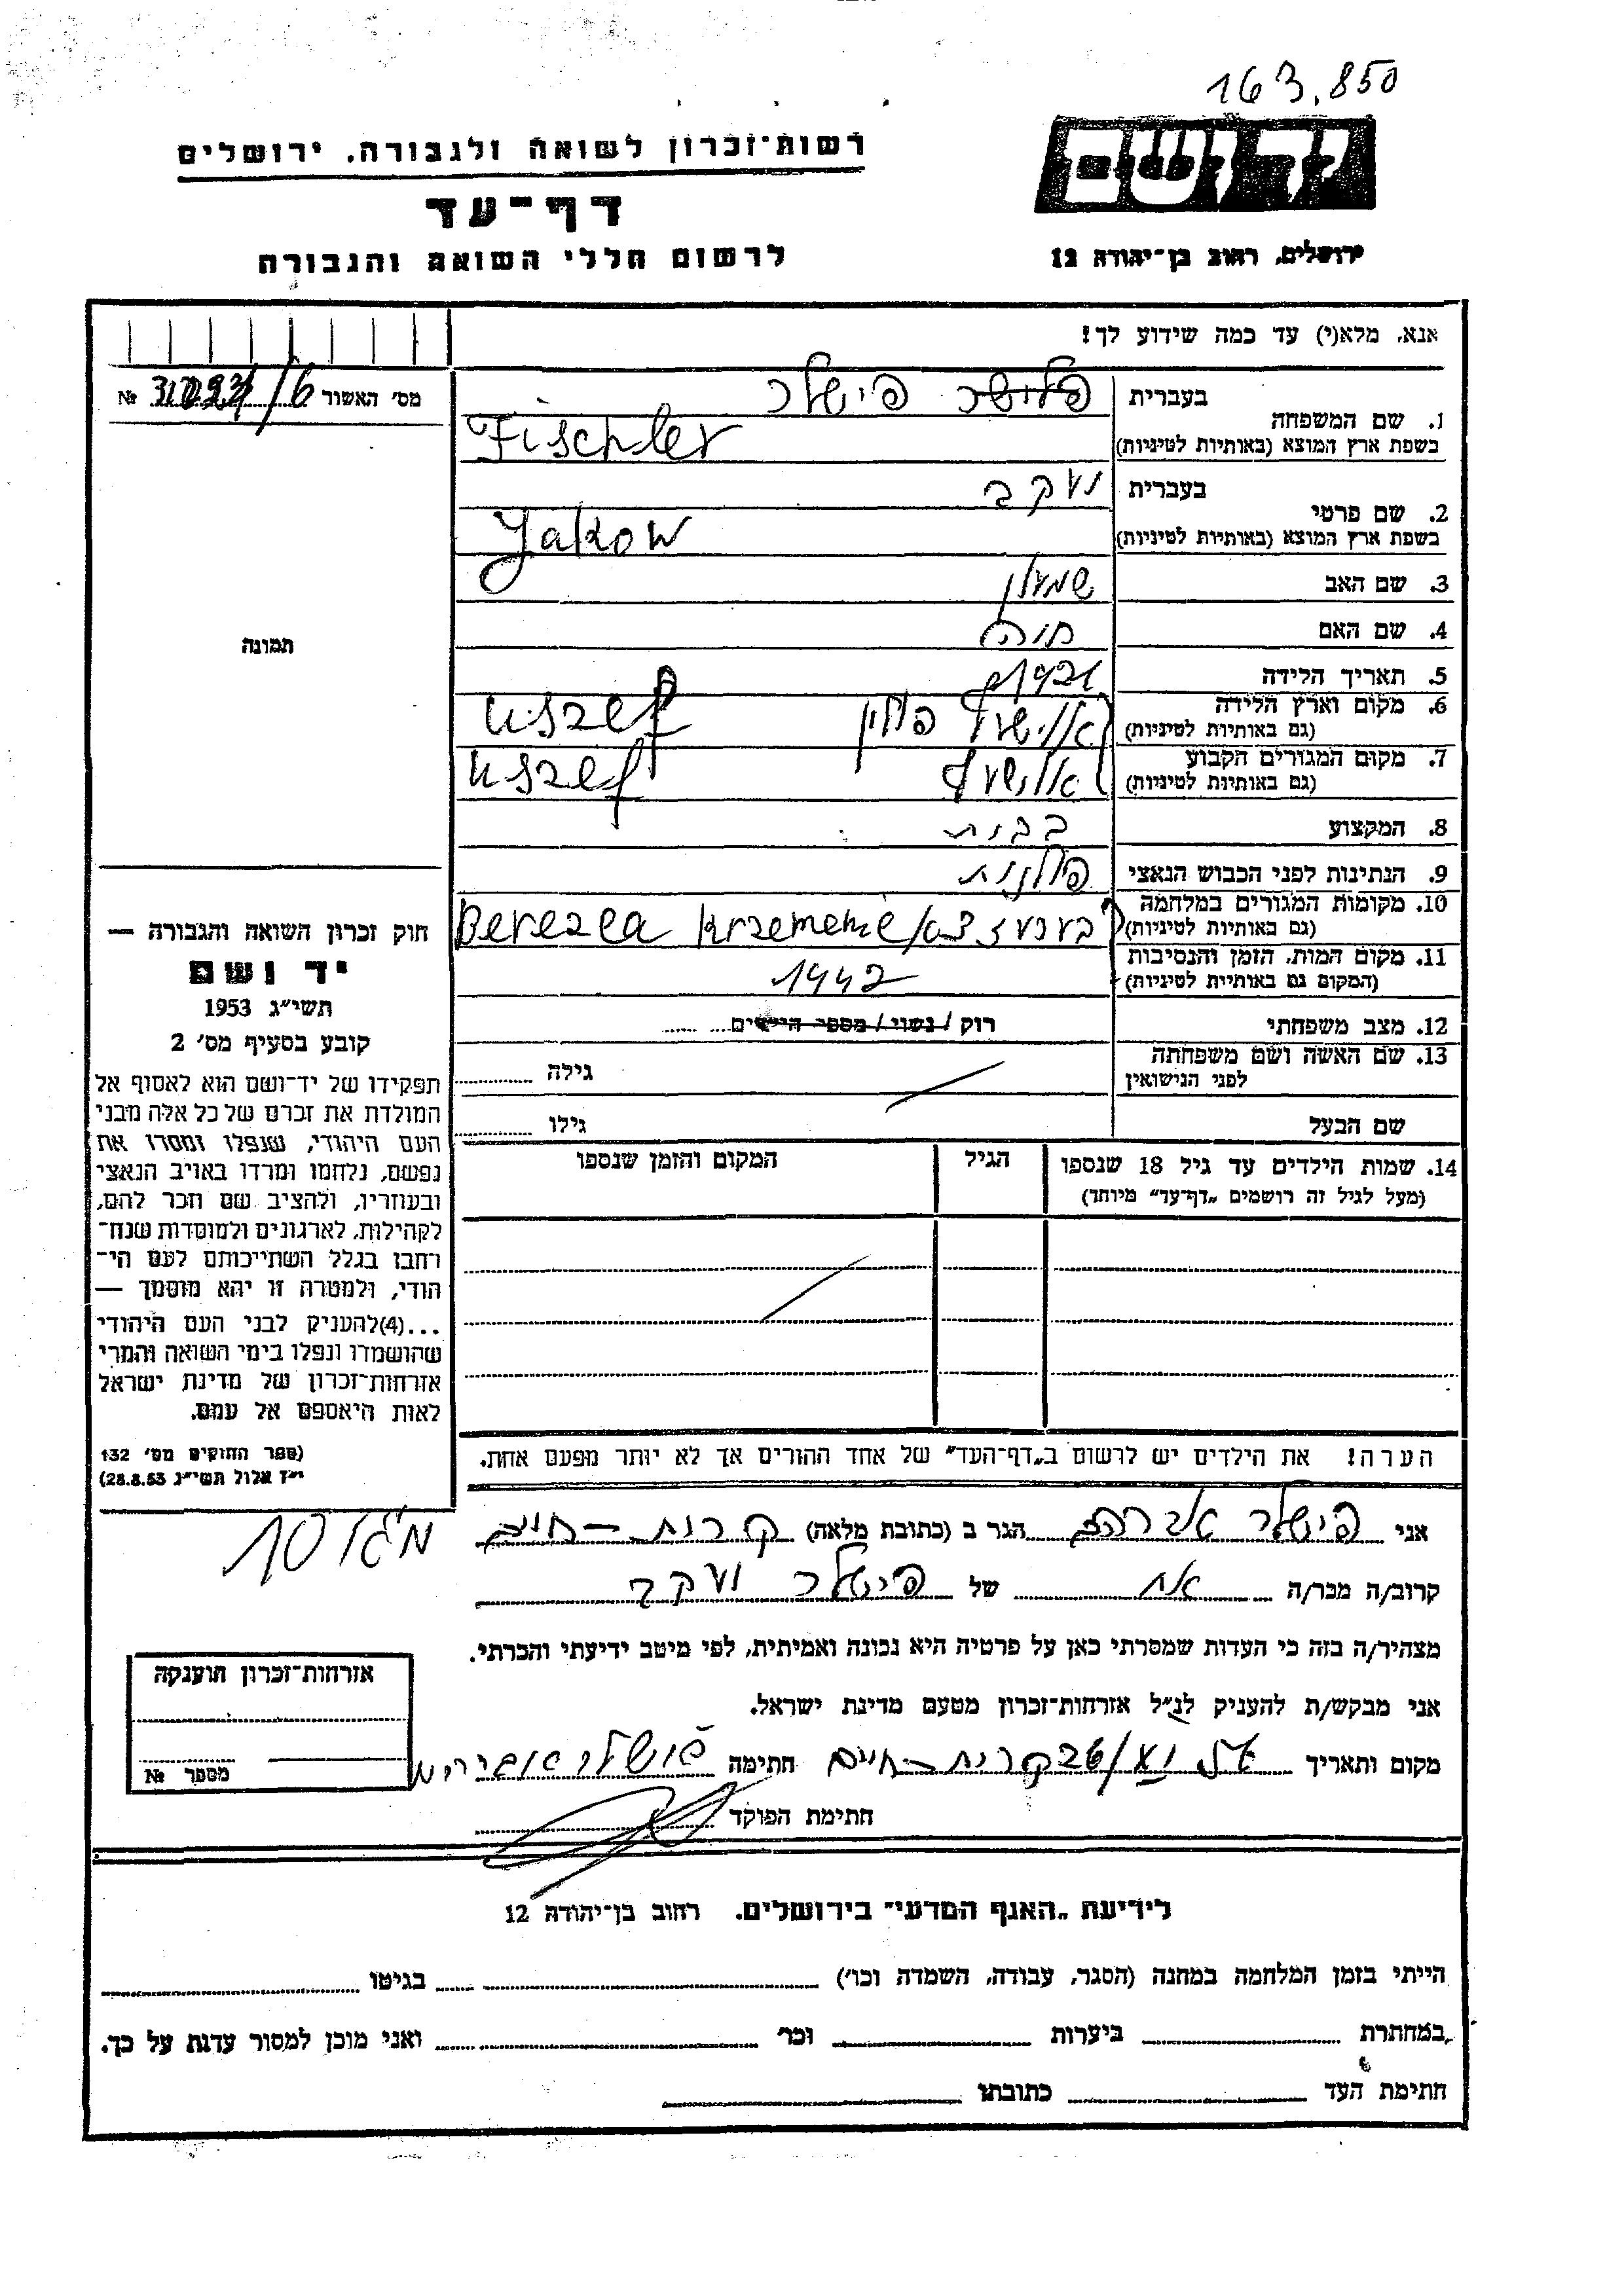 163,850
רשות־זכרון לשואה ולגבורה, ירושלים
יד ושם
דף־עד
לרשום חללי השואה והגבורה
ירושלים, רחוב בן־יהודה 12
אנא, מלא(י) עד כמה שידוע לך!
מס׳ האשור №
בעברית פישלר
1. שם המשפחה
בשפת ארץ המוצא (באותיות לטיניות) Fischler
בעברית יעקב
2. שם פרטי
בשפת ארץ המוצא (באותיות לטיניות) Jakow
3. שם האב שמעון
4. שם האם חוה
5. תאריך הלידה 1921
6. מקום וארץ הלידה
(גם באותיות לטיניות) פולין
7. מקום המגורים הקבוע
(גם באותיות לטיניות)
8. המקצוע
9. הנתינות לפני הכבוש הנאצי פולנית
10. מקומות המגורים במלחמה
(גם באותיות לטיניות)
11. מקום המות, הזמן והנסיבות
(המקום גם באותיות לטיניות) 1942
12. מצב משפחתי רוק / נשוי / מספר הילדים
13. שם האשה ושם משפחתה
לפני הנישואין גילה
שם הבעל גילו
14. שמות הילדים עד גיל 18 שנספו הגיל המקום והזמן שנספו
(מעל לגיל זה רושמים „דף־עד” מיוחד)
הערה! את הילדים יש לרשום ב„דף־העד” של אחד ההורים אך לא יותר מפעם אחת.
תמונה
חוק זכרון השואה והגבורה —
יד ושם
תשי״ג 1953
קובע בסעיף מס׳ 2
תפקידו של יד־ושם הוא לאסוף אל
המולדת את זכרם של כל אלה מבני
העם היהודי, שנפלו ומסרו את
נפשם, נלחמו ומרדו באויב הנאצי
ובעוזריו, ולהציב שם וזכר להם,
לקהילות, לארגונים ולמוסדות שנח־
רבו בגלל השתייכותם לעם הי־
הודי, ולמטרה זו יהא מוסמך —
...(4)להעניק לבני העם היהודי
שהושמדו ונפלו בימי השואה והמרי
אזרחות־זכרון של מדינת ישראל
לאות היאספם אל עמם.
(ספר החוקים מס׳ 132
י״ז אלול תשי״ג 28.8.53)
אני פישלר אברהם הגר ב (כתובת מלאה) קרית–חיים
קרוב/ה מכר/ה אח של פישלר יעקב
מצהיר/ה בזה כי העדות שמסרתי כאן על פרטיה היא נכונה ואמיתית, לפי מיטב ידיעתי והכרתי.
אני מבקש/ת להעניק לנ״ל אזרחות־זכרון מטעם מדינת ישראל.
מקום ותאריך קרית–חיים חתימה פישלר אברהם
חתימת הפוקד
אזרחות־זכרון הוענקה
מספר №
לידיעת „האגף המדעי” בירושלים. רחוב בן־יהודה 12
הייתי בזמן המלחמה במחנה (הסגר, עבודה, השמדה וכו׳) בגיטו
במחתרת ביערות וכו׳ ואני מוכן למסור עדות על כך.
חתימת העד כתובתו